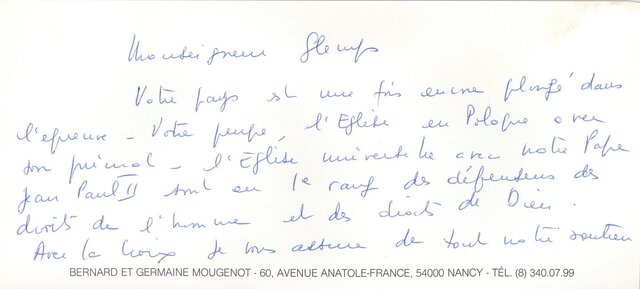 Monseigneur Glemp
Votre pays est une fois encore plongé dans
l'épreuve - Votre peuple, l'Eglise en Pologne avec
son primat - l'Eglise universelle avec notre Pape
Jean Paul II sont au 1e rang des défenseurs des
droits de l'homme et des droits de Dieu.
Avec la Croix je vous assure de tout notre soutien
BERNARD ET GERMAINE MOUGENOT - 60, AVENUE ANATOLE-FRANCE, 54000 NANCY - TÉL. (8) 340.07.99